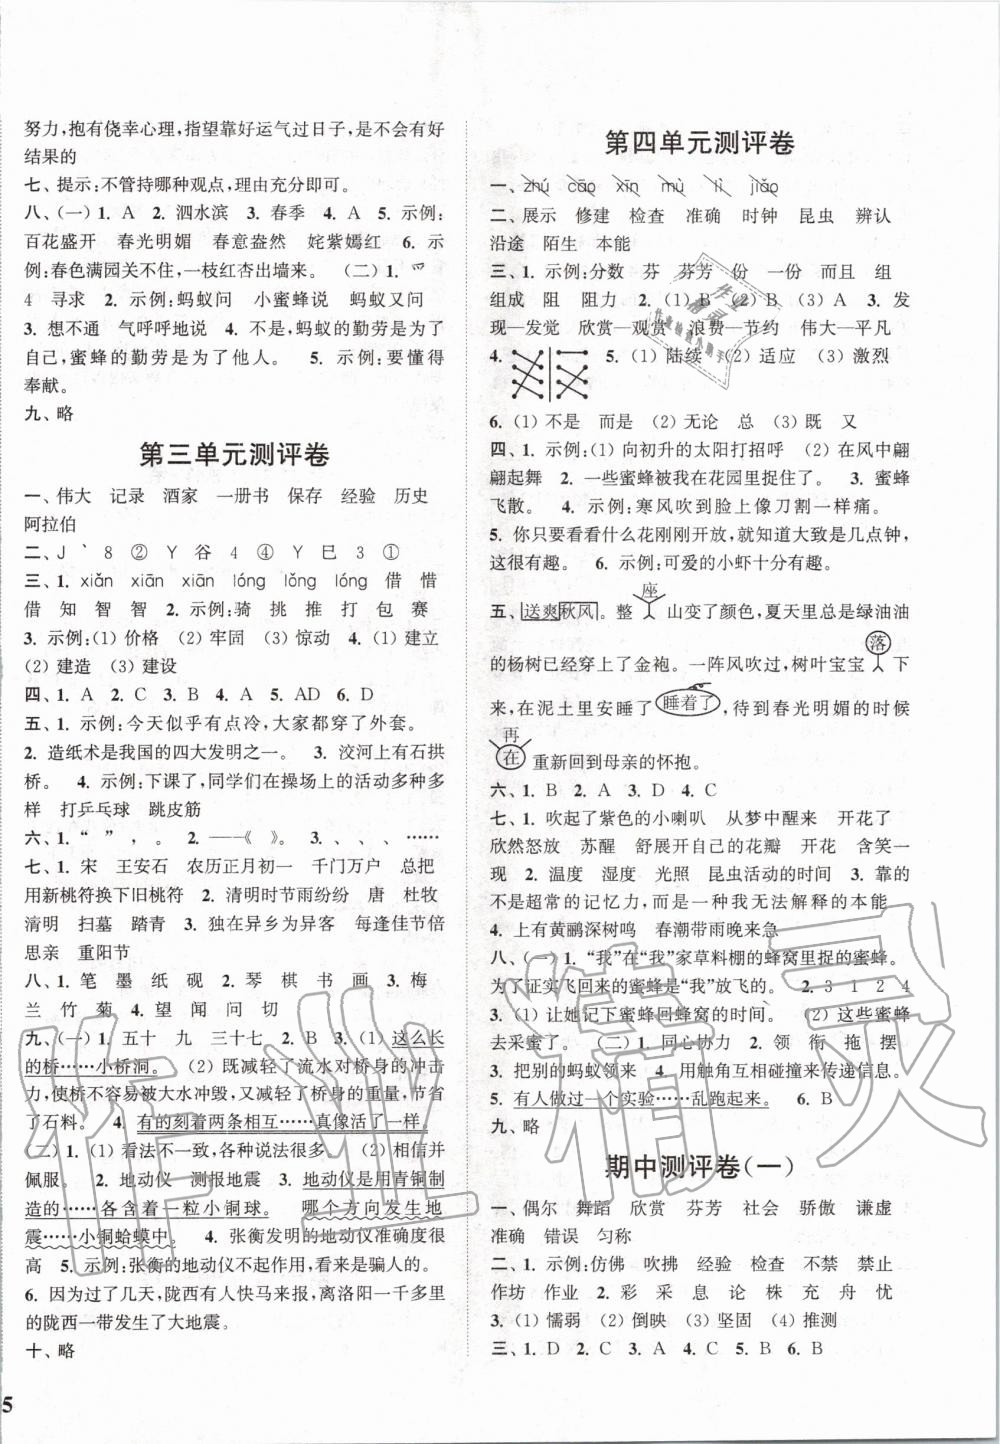 努力,抱有侥幸心理,指望靠好运气过日子,是不会有好
结果的
七、提示:不管持哪种观点,理由充分即可。
八、(一) 1. A 2. 泗水滨 3. 春季 4. A 5. 示例:
百花盛开 春光明媚 春意盎然 姹紫嫣红 6. 示
例:春色满园关不住,一枝红杏出墙来。 (二) 1. 四
4 寻求 2. 示例:蚂蚁问 小蜜蜂说 蚂蚁又问
3. 想不通 气呼呼地说 4. 不是,蚂蚁的勤劳是为了
自己,蜜蜂的勤劳是为了人类。 5. 示例:要懂得
奉献。
九、略
第三单元测评卷
一、伟大 记录 酒家 一册书 保存 经验 历史
阿拉伯
二、J ` 8 ② Y 谷 4 ④ Y 巳 3 ①
三、1. xiǎn xiān xiān lóng lǒng lóng 借 惜
借 知 智 智 2. 示例:骑 挑 推 打 包 赛
3. 示例:(1) 价格 (2) 牢固 (3) 惊动 4. (1) 建立
(2) 建造 (3) 建设
四、1. A 2. C 3. B 4. A 5. AD 6. D
五、1. 示例:今天似乎有点冷,大家都穿了外套。
2. 造纸术是我国的四大发明之一。 3. 洨河上有石拱
桥。 4. 示例:下课了,同学们在操场上的活动多种多
样 打乒乓球 跳皮筋
六、1. “ ” , 。 2. ——《 》。 3. 、 、 、 ……
七、1. 宋 王安石 农历正月初一 千门万户 总把
用新桃符换下旧桃符 2. 清明时节雨纷纷 唐 杜牧
清明 扫墓 踏青 3. 独在异乡为异客 每逢佳节倍
思亲 重阳节
八、1. 笔 墨 纸 砚 2. 琴 棋 书 画 3. 梅
兰 竹 菊 4. 望 闻 问 切
九、(一) 1. 五十 九 三十七 2. B 3. (1) 这么长
的桥……小桥洞。 (2) 既减轻了流水对桥身的冲击
力,使桥不容易被大水冲毁,又减轻了桥身的重量,节省
了石料。 4. 有的刻着两条相互……真像活了一样。
(二) 1. (1) 看法不一致,各种说法很多 (2) 相信并
佩服。 2. 地动仪 测报地震 3. 地动仪是用青铜制
造的……各含着一粒小铜球。 哪个方向发生地
震……小铜蛤蟆中。 4. 张衡发明的地动仪准确度很
高 5. 示例:张衡的地动仪不起作用,看来是骗人的。
6. 因为过了几天,陇西有人快马来报,离洛阳一千多里
的陇西一带发生了大地震。
十、略
5
第四单元测评卷
一、zhú cāo xīn mù lì jiǎo
二、展示 修建 检查 准确 时钟 昆虫 辨认
沿途 陌生 本能
三、1. 示例:分数 芬 芬芳 份 一份 而且 组
组成 阻 阻力 2. (1) B (2) B (3) A 3. 发
现—发觉 欣赏—观赏 浪费—节约 伟大—平凡
4. 5. (1) 陆续 (2) 适应 (3) 激烈
6. (1) 不是 而是 (2) 无论 总 (3) 既 又
四、1. 示例:(1) 向初升的太阳打招呼 (2) 在风中翩
翩起舞 2. 一些蜜蜂被我在花园里捉住了。 3. 蜜蜂
飞散。 4. 示例:寒风吹到脸上像刀割一样痛。
5. 你只要看看什么花刚刚开放,就知道大致是几点钟,
这很有趣。 6. 示例:可爱的小虾十分有趣。
五、送爽秋风。整座山变了颜色,夏天里总是绿油油
的杨树已经穿上了金袍。一阵风吹过,树叶宝宝落下
来,在泥土里安睡了睡着了,待到春光明媚的时候
再在重新回到母亲的怀抱。
六、1. B 2. A 3. D 4. C
七、1. 吹起了紫色的小喇叭 从梦中醒来 开花了
欣然怒放 苏醒 舒展开自己的花瓣 开花 含笑一
现 2. 温度 湿度 光照 昆虫活动的时间 3. 靠的
不是超常的记忆力,而是一种我无法解释的本能
4. 上有黄鹂深树鸣 春潮带雨晚来急
八、(一) 1. “我”在“我”家草料棚的蜂窝里捉的蜜蜂。
为了证实飞回来的蜜蜂是“我”放飞的。 2. 3 1 2 4
3. (1) 让她记下蜜蜂回蜂窝的时间。 (2) 这些蜜蜂
去采蜜了。 (二) 1. 同心协力 2. 领 衔 拖 摆
3. 把别的蚂蚁领来 4. 用触角互相碰撞来传递信息。
5. 有人做过一个实验……乱跑起来。 6. B
九、略
期中测评卷(一)
一、偶尔 舞蹈 欣赏 芬芳 社会 骄傲 谦虚
准确 错误 匀称
二、1. 示例:仿佛 吹拂 经验 检查 不禁 禁止
作坊 作业 2. 翔 息 论 株 充 舟 忧
3. (1) 懦弱 (2) 幼稚 (3) 坚固 (4) 推测
三、1. D 2. C 3. A 4. C 5. B 6. B